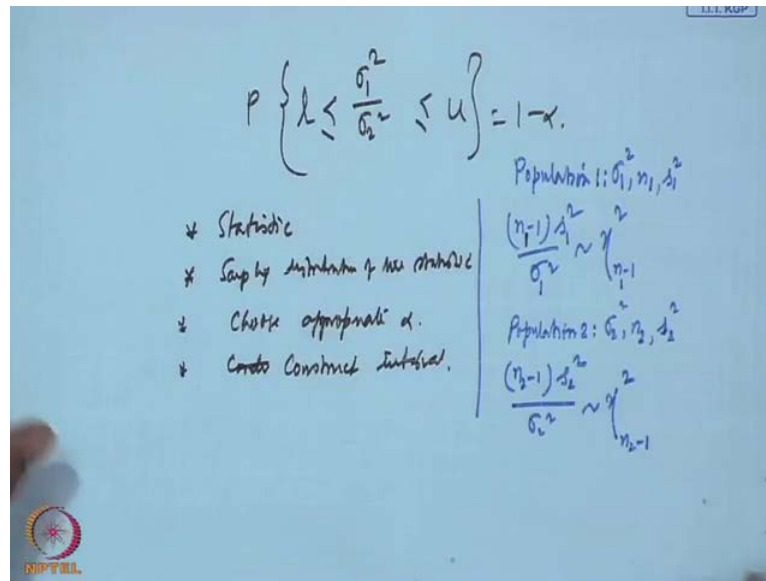 I.I.T. KGP
P { l ≤ σ₁² / σ₂² ≤ u } = 1-α.
* Statistic
* Sampling distribution of the statistic
* Choose appropriate α.
* Construct interval.
Population 1: σ₁², n₁, s₁²
(n₁-1) s₁² / σ₁² ~ χ²ₙ₁₋₁
Population 2: σ₂², n₂, s₂²
(n₂-1) s₂² / σ₂² ~ χ²ₙ₂₋₁
NPTEL